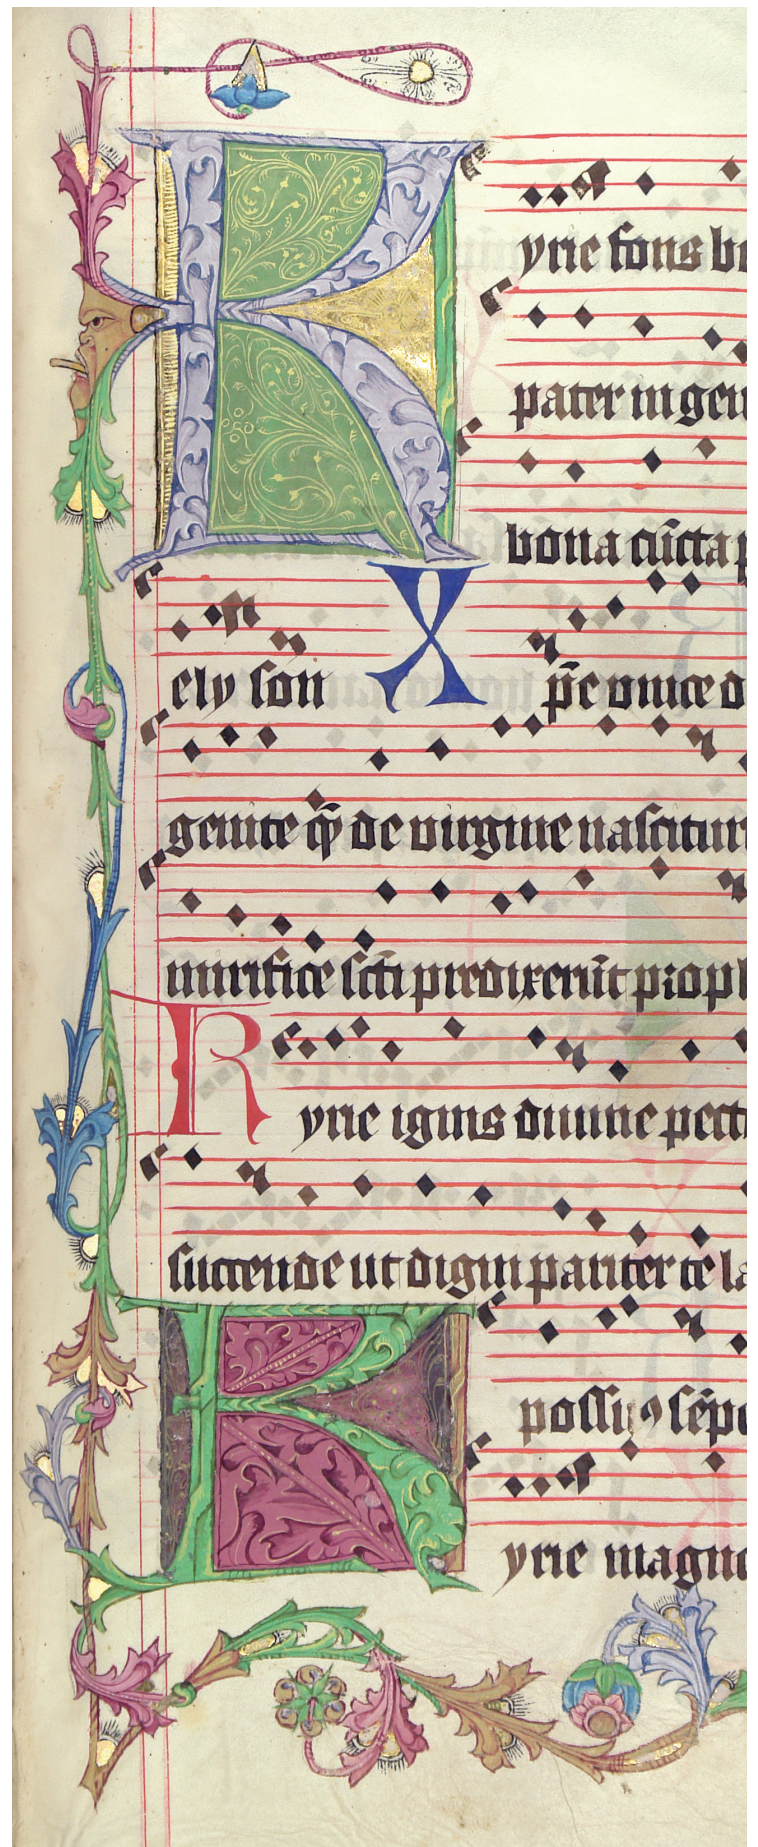 Kyrie fons bo
pater ingen
bona cūcta p
ely son Xp̄e unice d
genite q̄ de virgine nascitur
mirifice sc̄ti predixerūt proph
Kyrie ignis divine pect
succende ut digni pariter te la
K possi⁹ sēpe
yrie magne